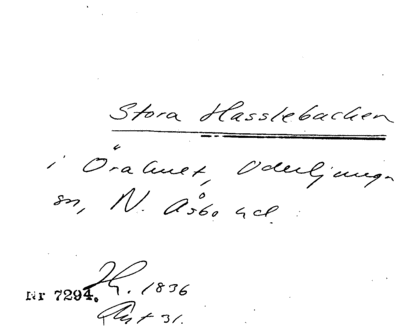 Stora Hasslebacken
i Örahult, Oderljunga
sn, N. Åsbo hd.
H. 1836
Nr 7294.
Akt 31.